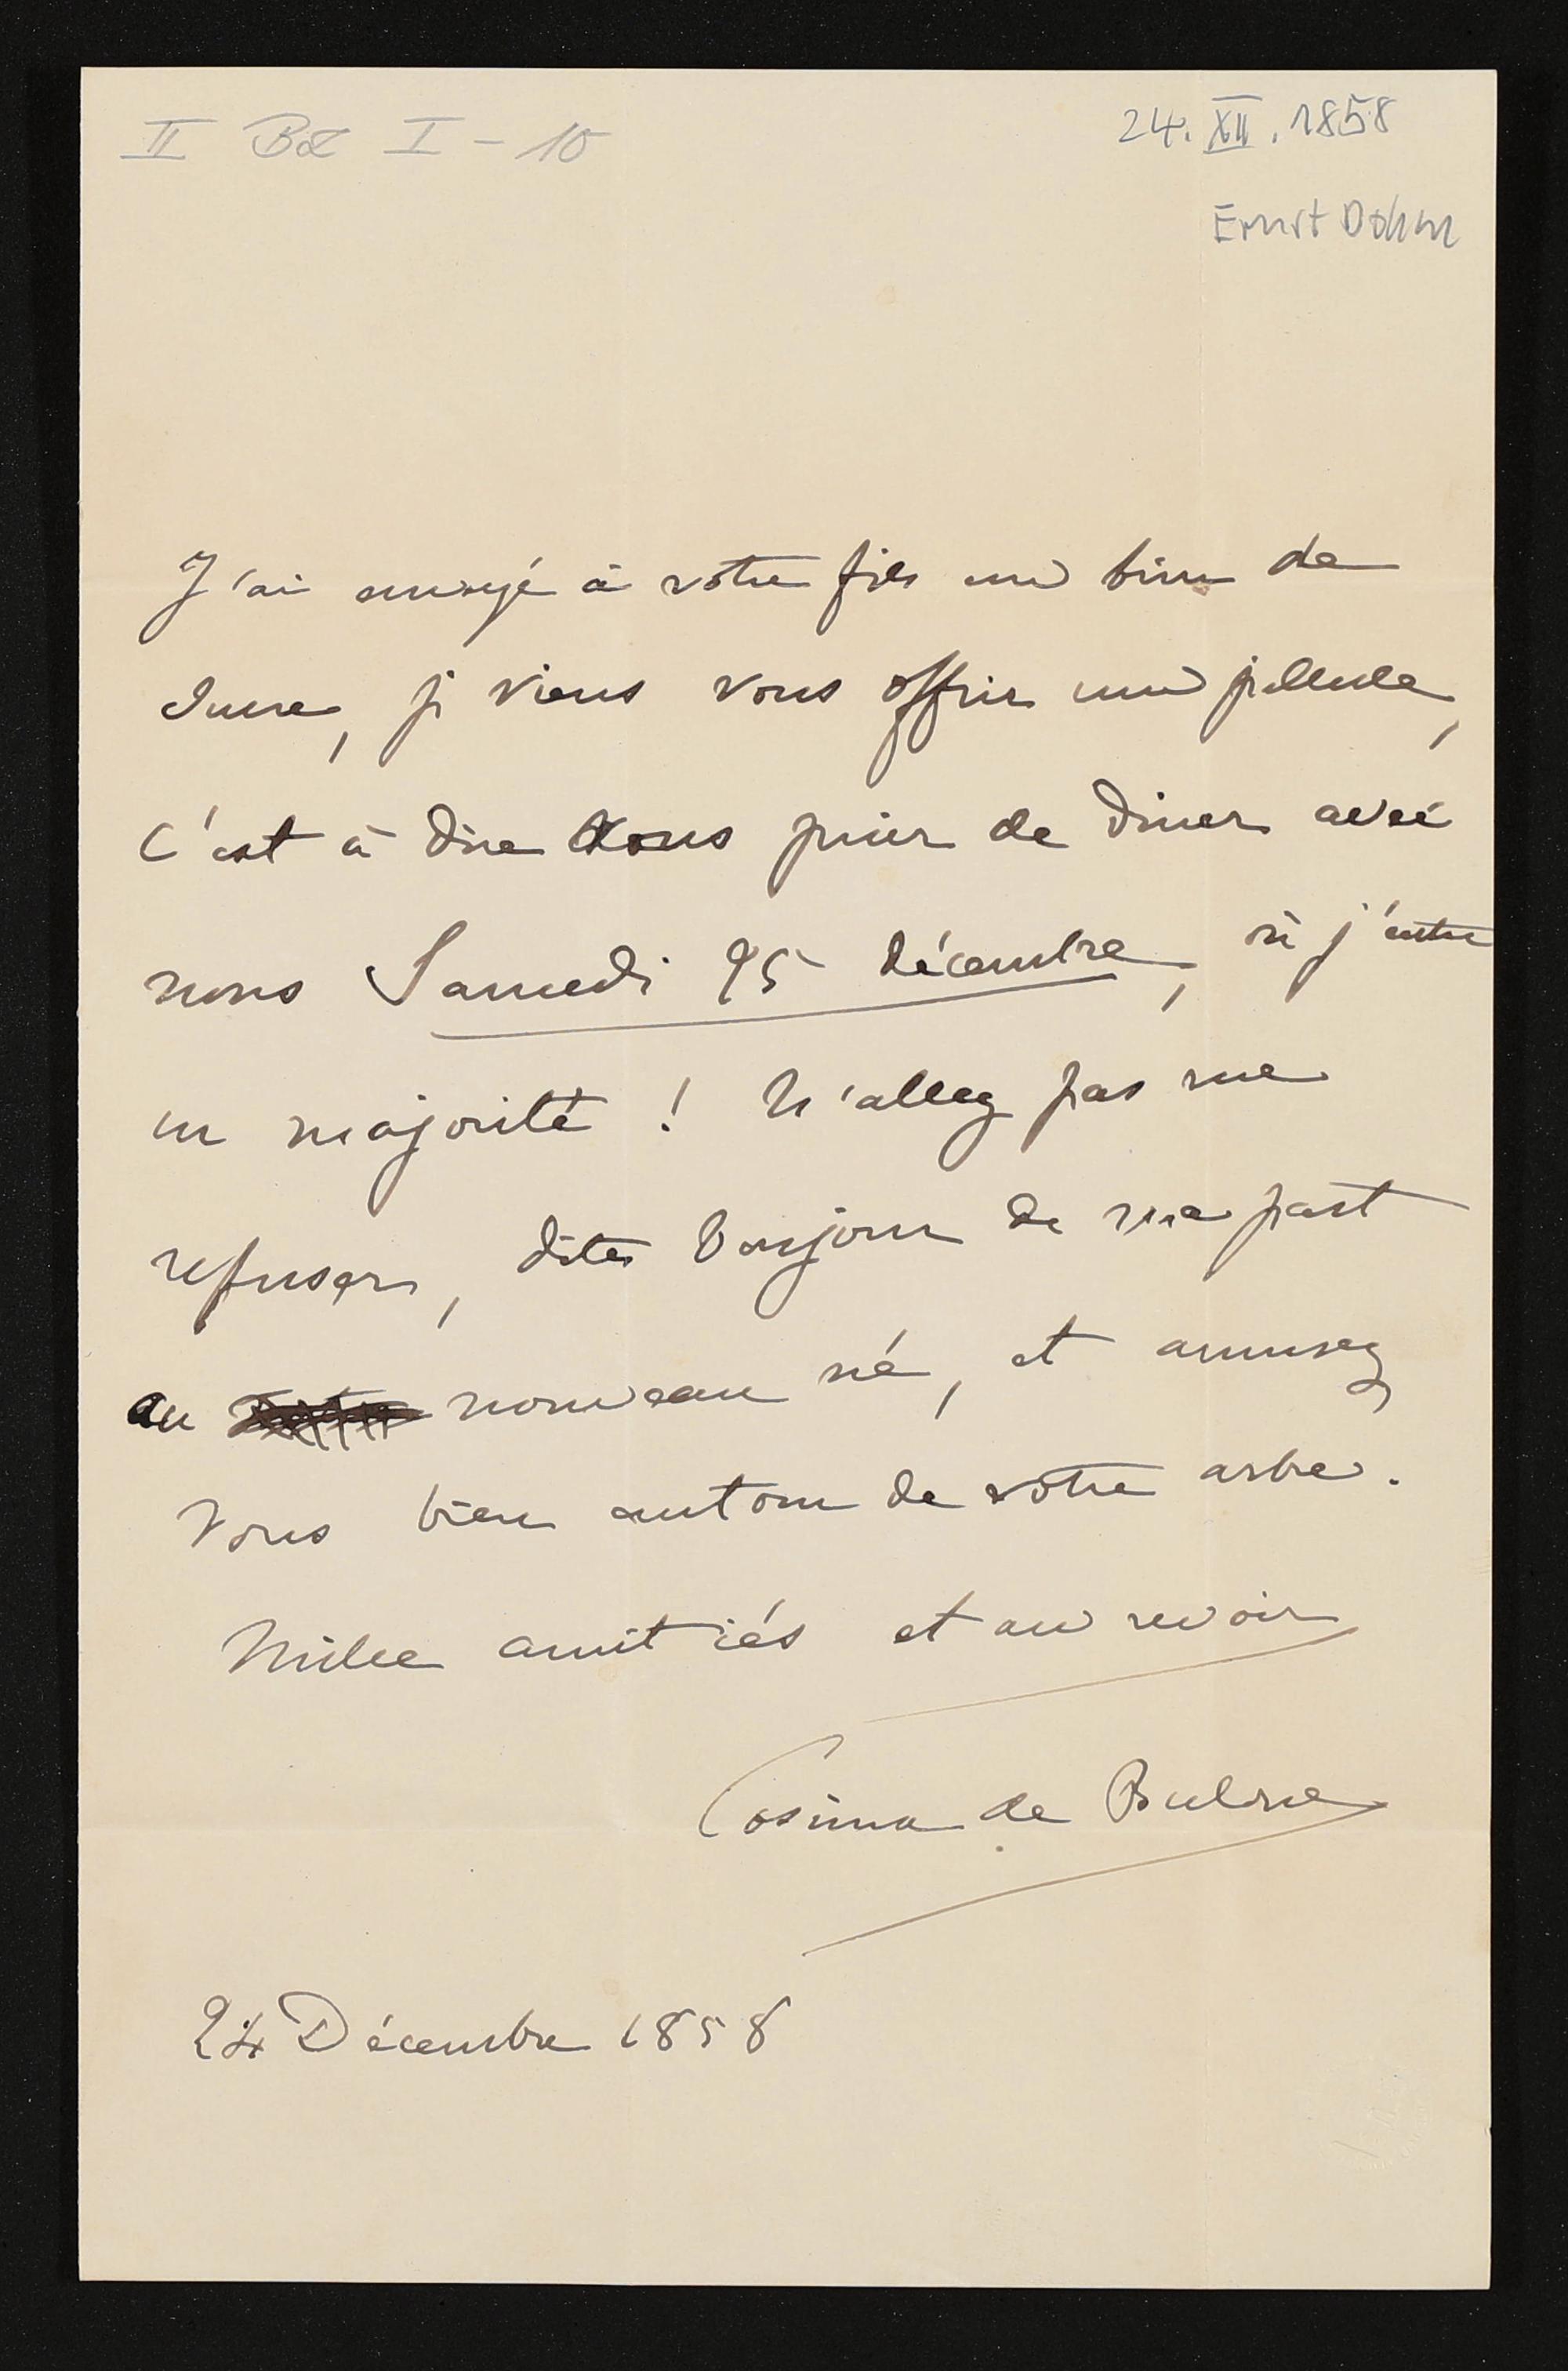 II BL I – 10
24. XII. 1858
Ernst Dohm
J'ai envoyé à votre fils un de
sucre, je viens vous offrir une pillule,
c'est à dire vous prier de diner avec
nous Samedi 25 décembre, où j'entre
en majorité ! N'allez pas me
refuser, dites bonjour de ma part
au nouveau né, et amusez
vous bien autour de votre arbre.
Mille amitiés et au revoir
Cosima de Bulow
24 Décembre 1858